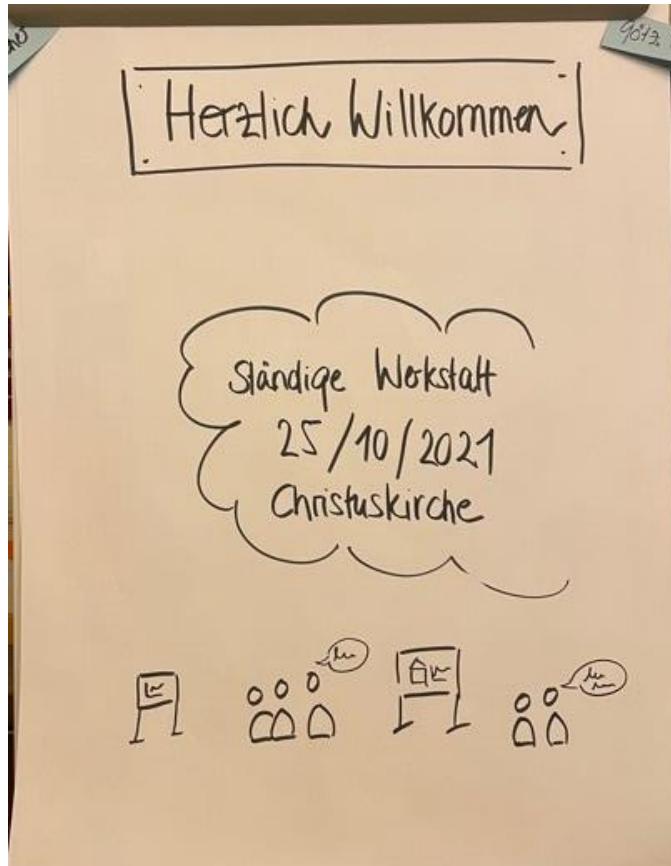 Herzlich Willkommen
Ständige Werkstatt
25/10/2021
Christuskirche